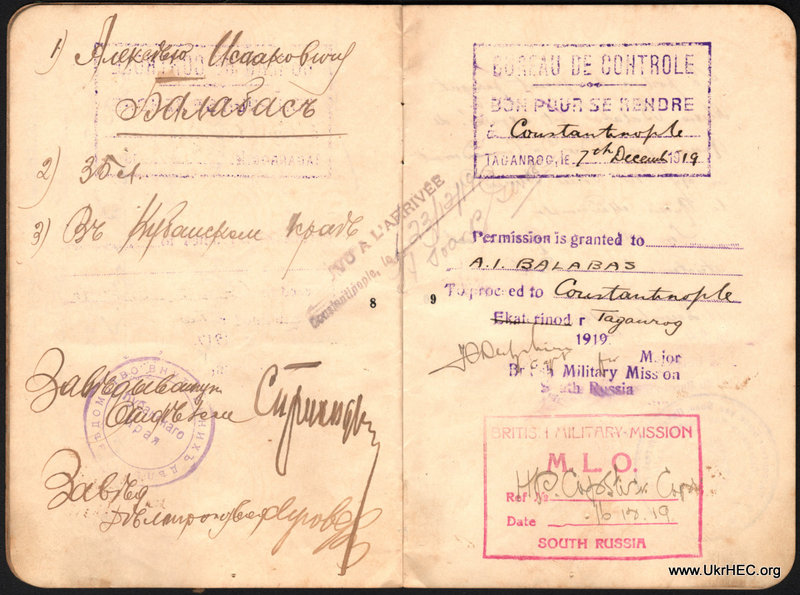 1) Алексѣю Исааковичу
Балабасъ
2) 35 л.
3) Въ Кубанском краѣ
8
Завѣдывающ
Завѣд
ВЕДОМСТВО ВНУТРЕННИХЪ ДѢЛЪ
Кубанскаго
края
VU A L'ARRIVÉE
Constantinople, le
BUREAU DE CONTROLE
BON POUR SE RENDRE
à Constantinople
TAGANROG, LE 7th Decemb 1919
Permission is granted to
A.I. BALABAS
9
To proceed to Constantinople
Ekaterinod r Taganrog
1919
for Major
British Military Mission
South Russia
BRITISH MILITARY-MISSION
M.L.O.
Ref №
Date 16 12 19
SOUTH RUSSIA
www.UkrHEC.org